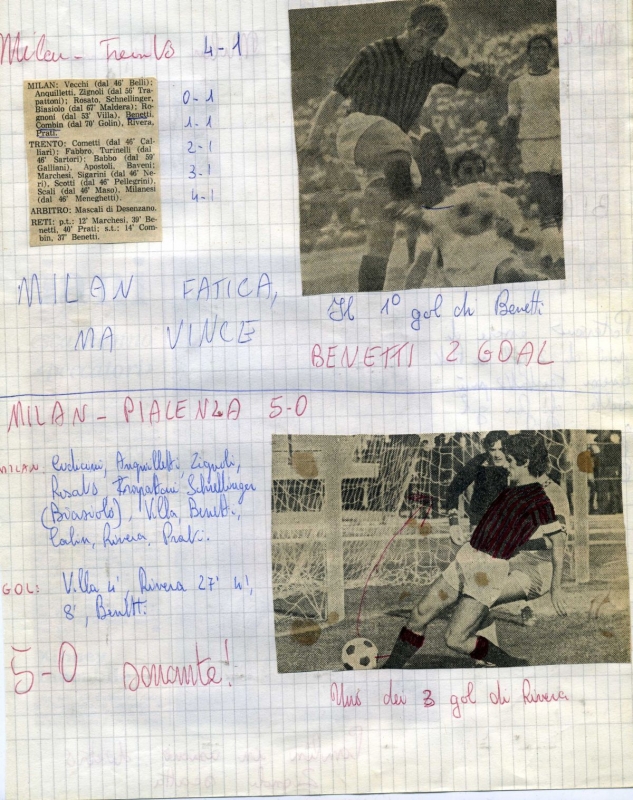 Milan - Trento 4-1
MILAN: Vecchi (dal 46' Belli);
Anquilletti, Zignoli (dal 56' Tra-
pattoni); Rosato, Schnellinger,
Biasiolo (dal 67' Maldera); Ro-
gnoni (dal 53' Villa), Benetti,
Combin (dal 70' Golin), Rivera,
Prati.
TRENTO: Cometti (dal 46' Cal-
liari); Fabbro, Turinelli (dal
46' Sartori); Babbo (dal 59'
Galliani), Apostoli, Baveni;
Marchesi, Sigarini (dal 46' Ne-
ri), Scotti (dal 46' Pellegrini),
Scali (dal 46' Maso), Milanesi
(dal 46' Meneghetti).
ARBITRO: Mascali di Desenzano.
RETI: p.t.: 12' Marchesi, 39' Be-
netti, 40' Prati; s.t.: 14' Com-
bin, 37' Benetti.
0-1
1-1
2-1
3-1
4-1
MILAN FATICA,
MA VINCE
Il 1º gol di Benetti
BENETTI 2 GOAL
MILAN - PIACENZA 5-0
MILAN Cudicini, Anquilletti Zignoli,
Rosato Trapattoni Schnellinger
(Biasiolo), Villa Benetti,
Golin, Rivera, Prati.
GOL: Villa 4', Rivera 27' 4',
8', Benetti.
5-0
Uno dei 3 gol di Rivera